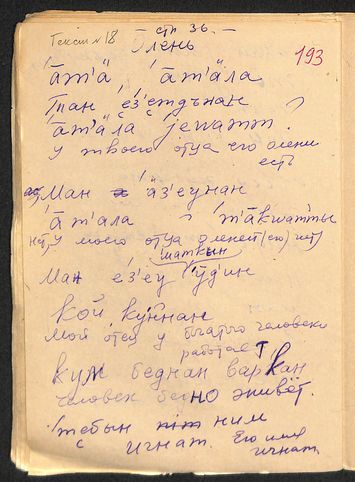 Текст № 18 стр 36.
Олень 193
а̄т'а̄, а̄т'а̄ла
Тан е́з'ешдъ́нан
а̄т'а̄ла јеwатт?
у твоего отца его олени
есть
Ман а̄з'еунан
а̄т'ала т'а̄кwатты
нет, у моего отца оленей (его) нет)
шаткын
Ман е́з'еу ӯдин
кой куннан
Мой отец у богатого человека
работает
кум беднан варкан
человек бедно живёт.
тебын ним
игнат. Его имя
игнат.